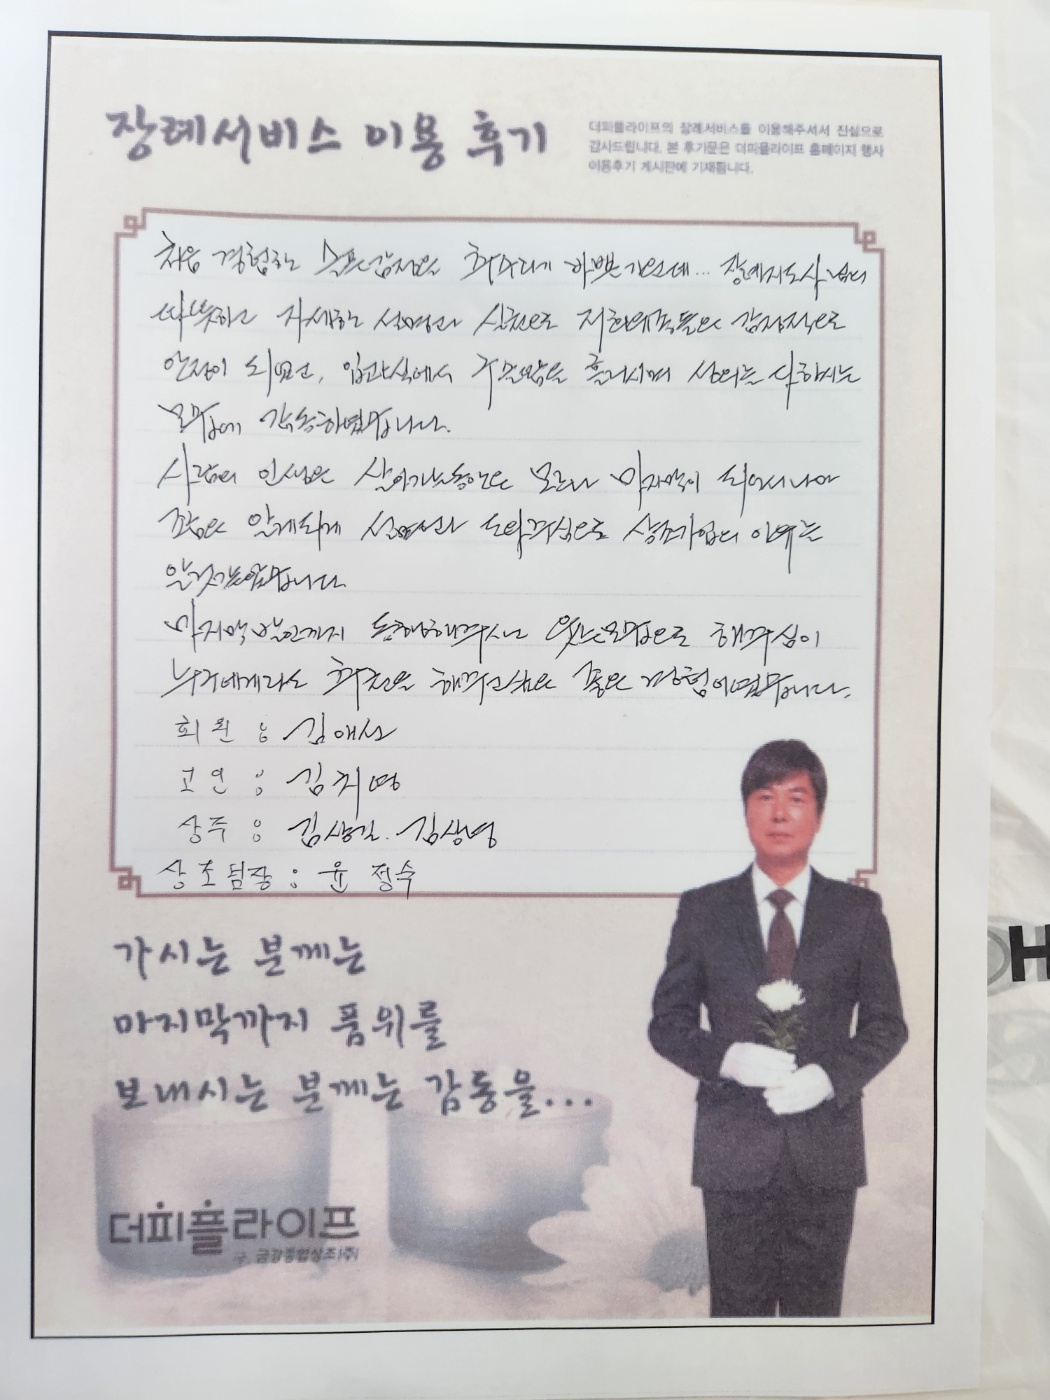 장례서비스 이용 후기
더피플라이프의 장례서비스를 이용해주셔서 진심으로
감사드립니다. 본 후기문은 더피플라이프 홈페이지 행사
이용후기 게시판에 기재됩니다.
처음 경험하는 슬픈감정은 바쁜가운데... 장례지도사님의
따뜻하고 자세한 설명과 저희 감정적으로
안정이 되었고, 입관식에서 흘리시며
모습에 감동하였습니다.
사람의 인생은 살아가는동안은 모르나 마지막이 되어서나마
알게되게 설명과 이유를
알것같았습니다.
마지막 발인까지 함께해주시고 웃는모습으로 해주심이
누구에게라도 추천을 해주고싶은 좋은 경험이였습니다.
회원 : 김애선
고인 : 김치명
상주 : 김상길. 김상영
상조팀장 : 윤정수
가시는 분께는
마지막까지 품위를
보내시는 분께는 감동을...
더피플라이프
구. 금강종합상조(주)
H